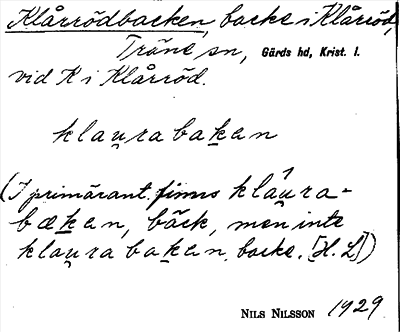 Klårrödbacken, backe i Klårröd,
Träne sn, Gärds hd, Krist. l.
vid R i Klårröd.
klau̯rabaken
(I primärant. finns kláu̯ra-
bækan, bäck, men inte
klau̯rabaken, backe. [H.L.])
NILS NILSSON 1929